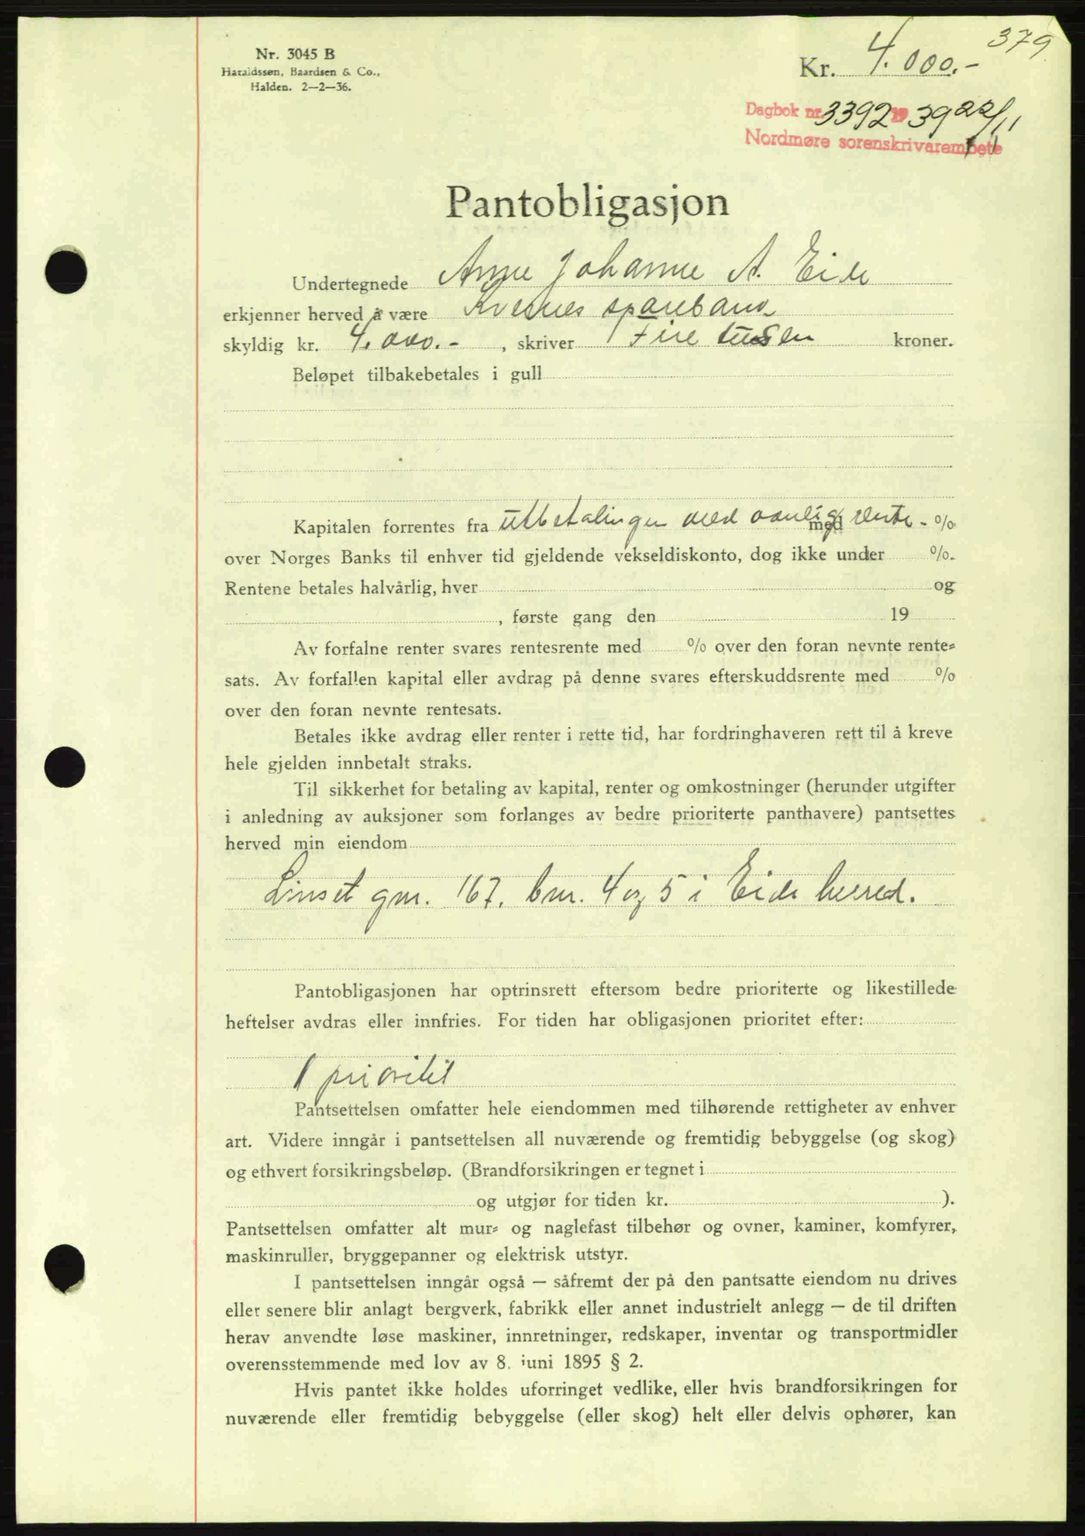 379
Nr. 3045 B
Haraldssøn, Baardsen & Co.,
Halden. 2—2—36.
Kr. 4.000.-
Dagbok nr. 3392 19 39 22/11
Nordmøre sorenskrivarembete
Pantobligasjon
Undertegnede Anne Johanne A. Eide
erkjenner herved å være Kvernes sparebank
skyldig kr. 4.000.- , skriver Fire tusen kroner.
Beløpet tilbakebetales i gull
Kapitalen forrentes fra utbetalingen med vanlig med rente - %
over Norges Banks til enhver tid gjeldende vekseldiskonto, dog ikke under %.
Rentene betales halvårlig, hver og
, første gang den 19
Av forfalne renter svares rentesrente med % over den foran nevnte rente-
sats. Av forfallen kapital eller avdrag på denne svares efterskuddsrente med %
over den foran nevnte rentesats.
Betales ikke avdrag eller renter i rette tid, har fordringhaveren rett til å kreve
hele gjelden innbetalt straks.
Til sikkerhet for betaling av kapital, renter og omkostninger (herunder utgifter
i anledning av auksjoner som forlanges av bedre prioriterte panthavere) pantsettes
herved min eiendom
Linset gnr. 167. bnr. 4 og 5 i Eide herred.
Pantobligasjonen har optrinsrett eftersom bedre prioriterte og likestillede
heftelser avdras eller innfries. For tiden har obligasjonen prioritet efter:
1 prioritet
Pantsettelsen omfatter hele eiendommen med tilhørende rettigheter av enhver
art. Videre inngår i pantsettelsen all nuværende og fremtidig bebyggelse (og skog)
og ethvert forsikringsbeløp. (Brandforsikringen er tegnet i
og utgjør for tiden kr. ).
Pantsettelsen omfatter alt mur- og naglefast tilbehør og ovner, kaminer, komfyrer,
maskinruller, bryggepanner og elektrisk utstyr.
I pantsettelsen inngår også — såfremt der på den pantsatte eiendom nu drives
eller senere blir anlagt bergverk, fabrikk eller annet industrielt anlegg — de til driften
herav anvendte løse maskiner, innretninger, redskaper, inventar og transportmidler
overensstemmende med lov av 8. juni 1895 § 2.
Hvis pantet ikke holdes uforringet vedlike, eller hvis brandforsikringen for
nuværende eller fremtidig bebyggelse (eller skog) helt eller delvis ophører, kan